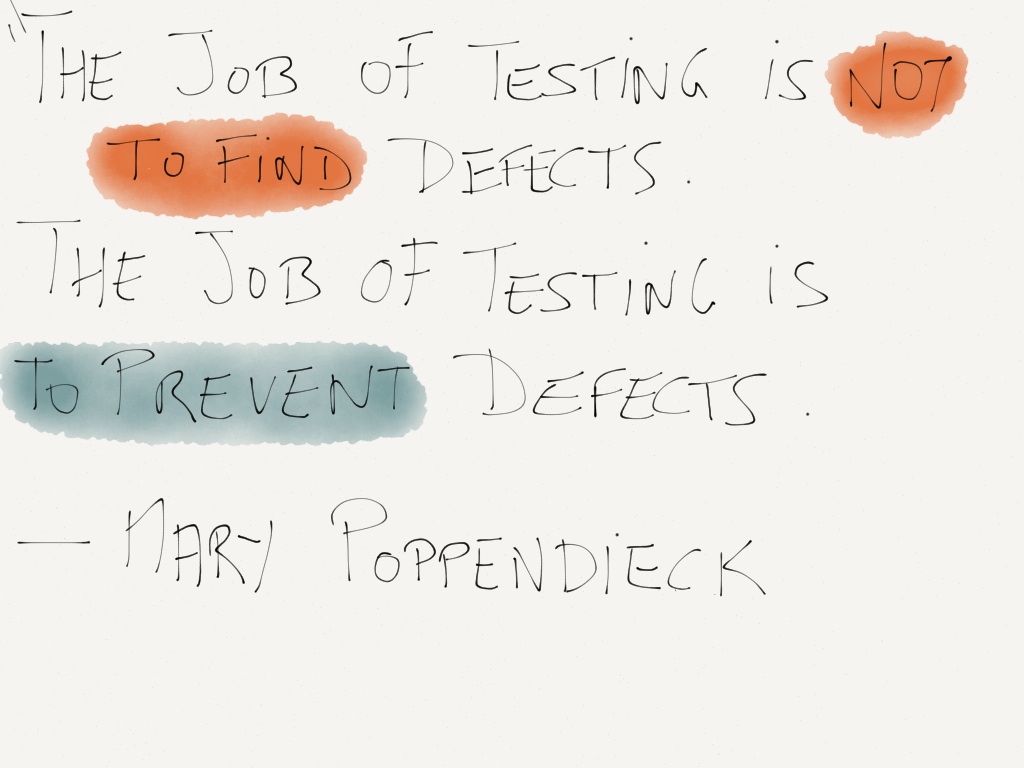 "THE JOB OF TESTING iS NOT
TO FiND DEFECTS.
THE JOB OF TESTiNG iS
TO PREVENT DEFECTS.
— MARY POPPENDiECK